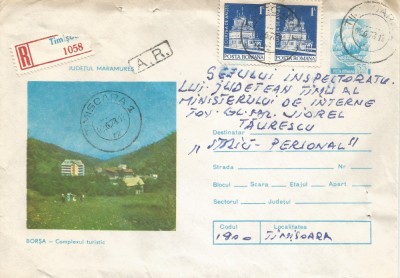 R
Timişoara
1058
A.R.
JUDEŢUL MARAMUREŞ
1L
1L
POSTA ROMANA
POSTA ROMANA
TIMIŞOARA 2
ŞEFULUI INSPECTORATU-
LUI JUDEŢEAN TIMIŞ AL
MINISTERULUI DE INTERNE
TOV. GL. MR. VIOREL
Destinatar TĂURESCU
"STRICT - PERSONAL"
Strada Nr.
Blocul Scara Etajul Apart.
Sectorul Judeţul
Codul Localitatea
1900 TIMIŞOARA
BORŞA — Complexul turistic